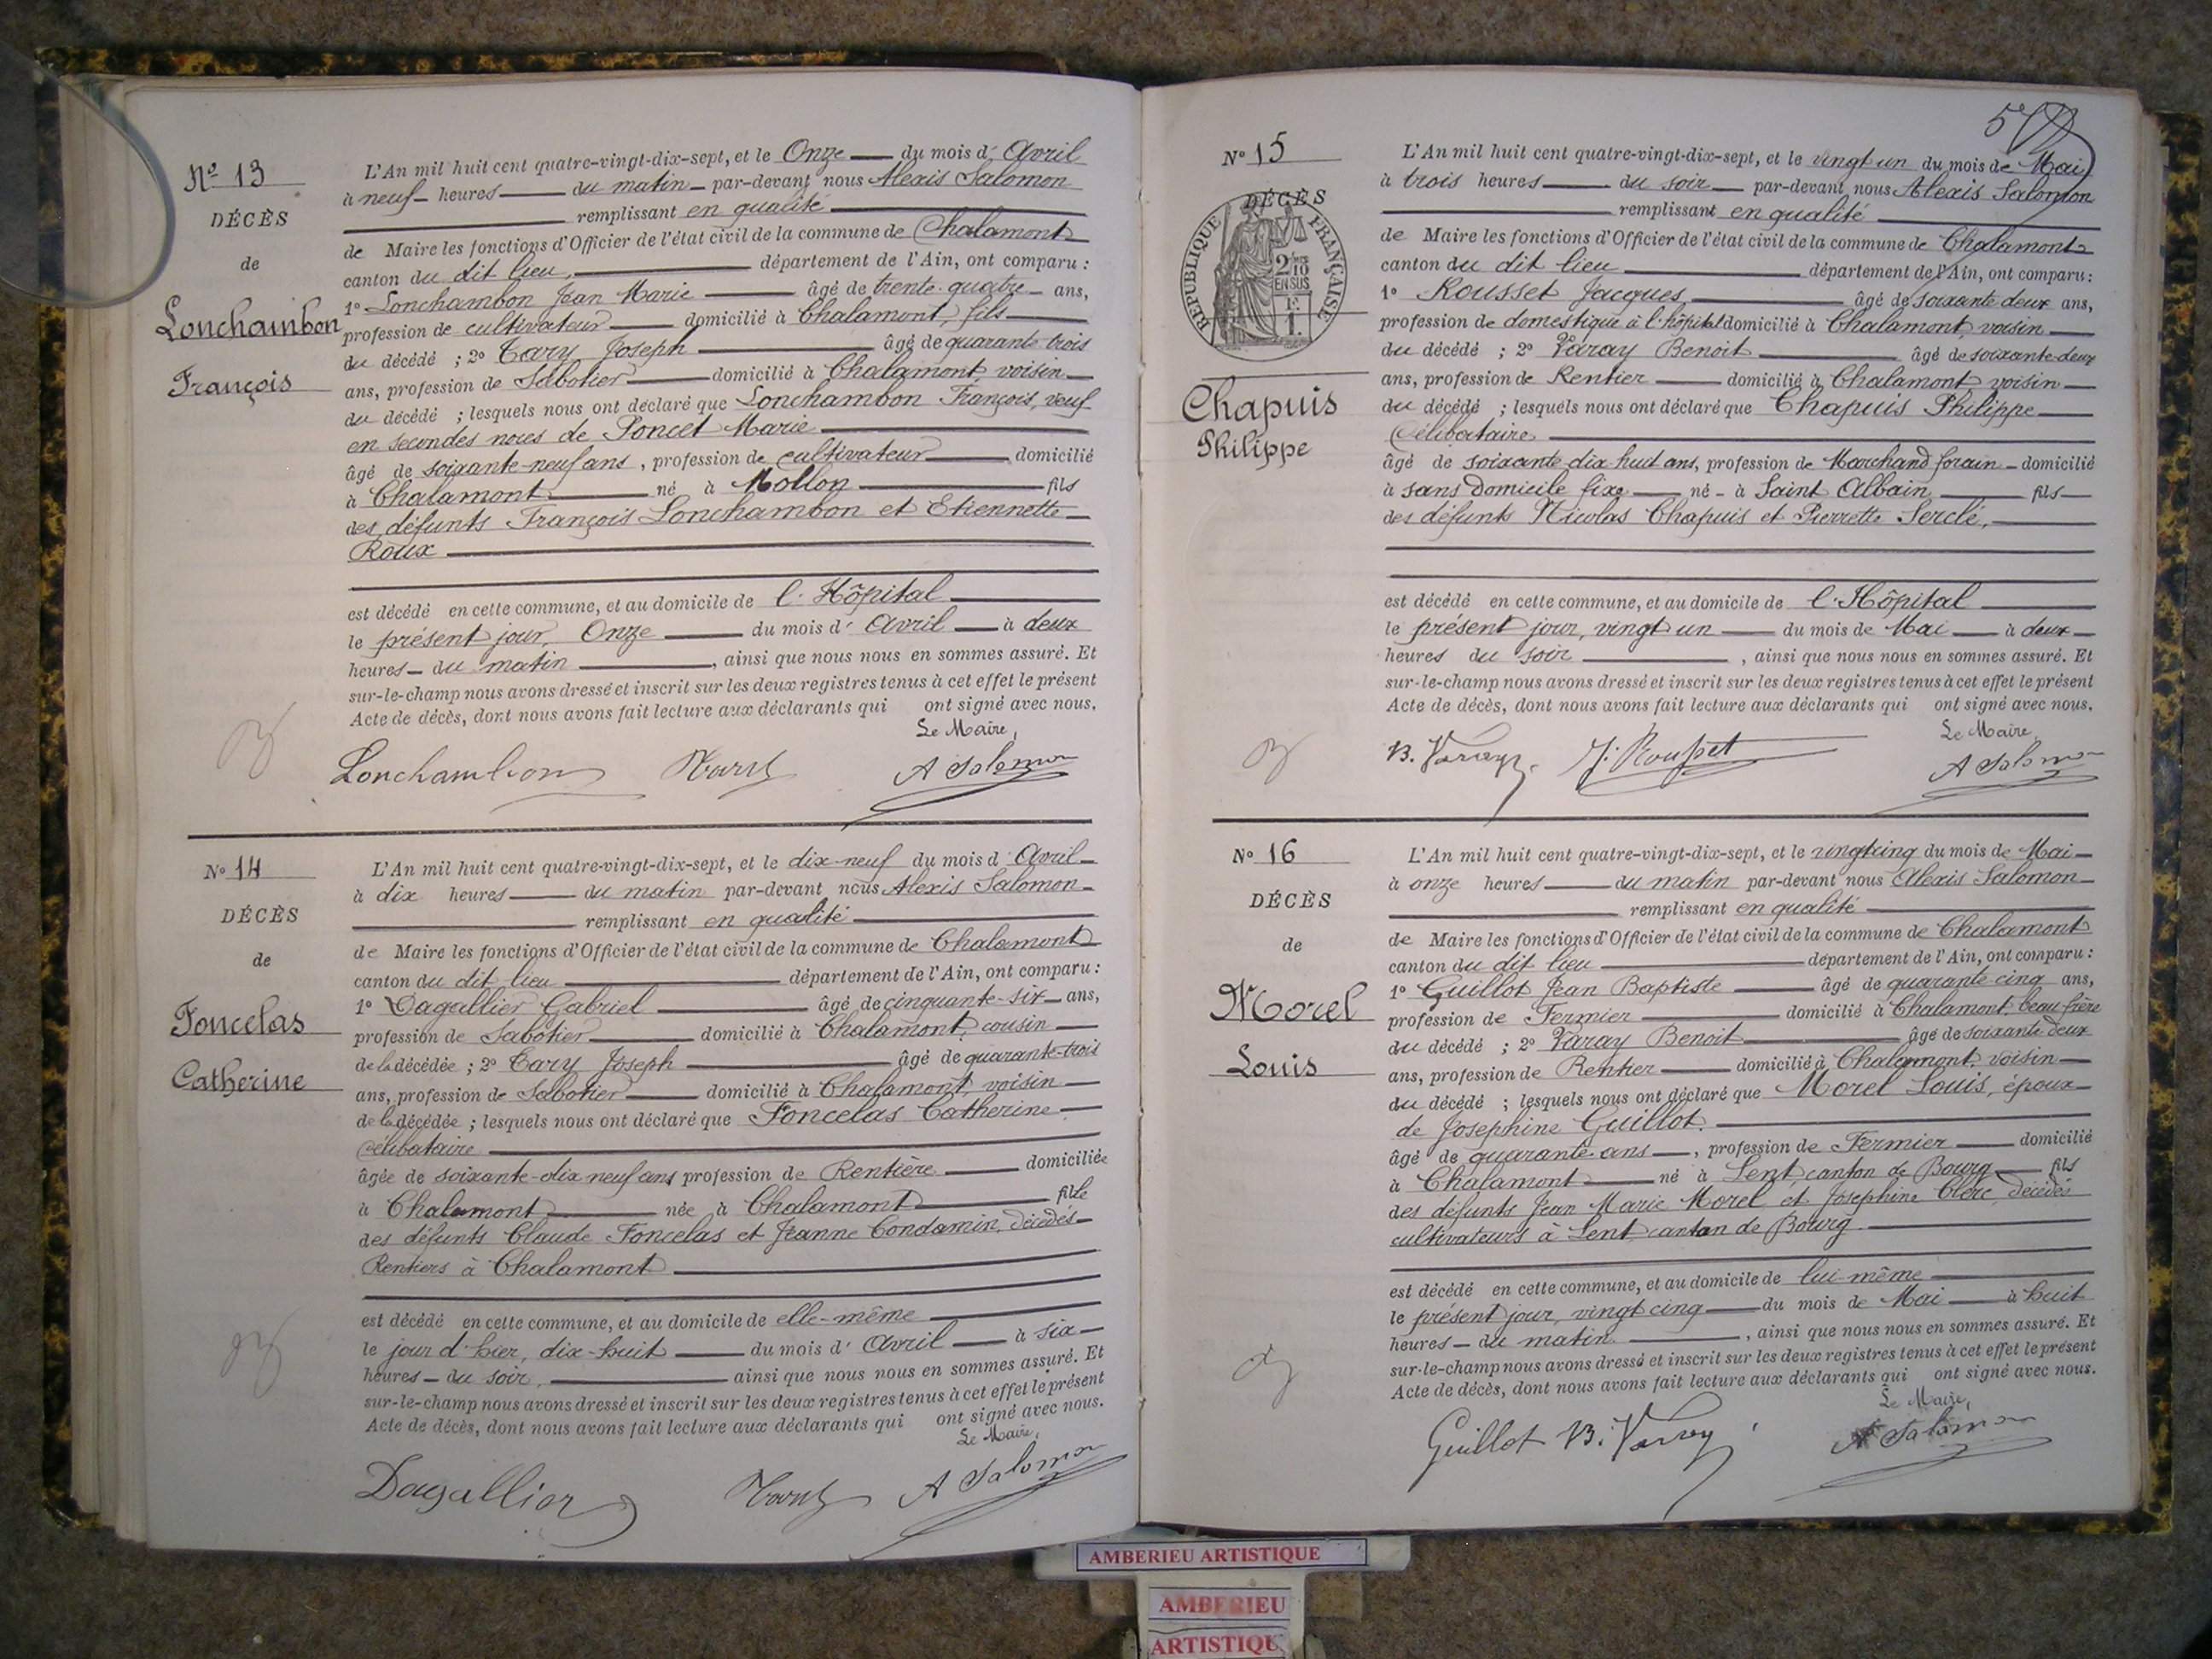 Nº 13
DÉCÈS
de
Lonchambon
François
L'An mil huit cent quatre-vingt-dix-sept, et le Onze du mois d' Avril
à neuf heures du matin par-devant nous Alexis Salomon
remplissant en qualité
de Maire les fonctions d'Officier de l'état civil de la commune de Chalamont
canton du dit lieu, département de l'Ain, ont comparu :
1º Lonchambon Jean Marie âgé de trente-quatre ans,
profession de cultivateur domicilié à Chalamont, fils
du décédé ; 2º Tary Joseph âgé de quarante trois
ans, profession de Sabotier domicilié à Chalamont, voisin
du décédé ; lesquels nous ont déclaré que Lonchambon François, veuf
en secondes noces de Poncet Marie
âgé de soixante-neuf ans, profession de cultivateur domicilié
à Chalamont né à Mollon fils
des défunts François Lonchambon et Etiennette
Roux
est décédé en cette commune, et au domicile de l'Hôpital
le présent jour, Onze du mois d' Avril à deux
heures du matin, ainsi que nous nous en sommes assuré. Et
sur-le-champ nous avons dressé et inscrit sur les deux registres tenus à cet effet le présent
Acte de décès, dont nous avons fait lecture aux déclarants qui ont signé avec nous.
Le Maire,
Lonchambon Tary A Salomon
Nº 14
DÉCÈS
de
Foncelas
Catherine
L'An mil huit cent quatre-vingt-dix-sept, et le dix-neuf du mois d' Avril
à dix heures du matin par-devant nous Alexis Salomon
remplissant en qualité
de Maire les fonctions d'Officier de l'état civil de la commune de Chalamont
canton du dit lieu département de l'Ain, ont comparu :
1º Dagallier Gabriel âgé de cinquante-six ans,
profession de Sabotier domicilié à Chalamont, cousin
de la décédée ; 2º Tary Joseph âgé de quarante-trois
ans, profession de Sabotier domicilié à Chalamont, voisin
de la décédée ; lesquels nous ont déclaré que Foncelas Catherine
célibataire
âgée de soixante-dix neuf ans profession de Rentière domiciliée
à Chalamont née à Chalamont fille
des défunts Claude Foncelas et Jeanne Condamin, décédés
Rentiers à Chalamont
est décédé en cette commune, et au domicile de elle-même
le jour d'hier, dix-huit du mois d' Avril à six
heures du soir, ainsi que nous nous en sommes assuré. Et
sur-le-champ nous avons dressé et inscrit sur les deux registres tenus à cet effet le présent
Acte de décès, dont nous avons fait lecture aux déclarants qui ont signé avec nous.
Le Maire,
Dagallier Tary A Salomon
Nº 15
DÉCÈS
RÉPUBLIQUE FRANÇAISE
2/10
EN SUS
Chapuis
Philippe
L'An mil huit cent quatre-vingt-dix-sept, et le vingt un du mois de Mai
à trois heures du soir par-devant nous Alexis Salomon
remplissant en qualité
de Maire les fonctions d'Officier de l'état civil de la commune de Chalamont
canton du dit lieu département de l'Ain, ont comparu :
1º Rousset Jacques, âgé de soixante deux ans,
profession de domestique à l'hôpital domicilié à Chalamont, voisin
du décédé ; 2º Varay Benoit âgé de soixante-deux
ans, profession de Rentier domicilié à Chalamont, voisin
du décédé ; lesquels nous ont déclaré que Chapuis Philippe
Célibataire
âgé de soixante dix huit ans, profession de Marchand forain domicilié
à sans domicile fixe né à Saint Albain fils
des défunts Nicolas Chapuis et Pierrette Serclé,
est décédé en cette commune, et au domicile de l'Hôpital
le présent jour, vingt un du mois de Mai à deux
heures du soir, ainsi que nous nous en sommes assuré. Et
sur-le-champ nous avons dressé et inscrit sur les deux registres tenus à cet effet le présent
Acte de décès, dont nous avons fait lecture aux déclarants qui ont signé avec nous.
Le Maire,
B. Varay J. Rousset A Salomon
Nº 16
DÉCÈS
de
Morel
Louis
L'An mil huit cent quatre-vingt-dix-sept, et le vingt cinq du mois de Mai
à onze heures du matin par-devant nous Alexis Salomon
remplissant en qualité
de Maire les fonctions d'Officier de l'état civil de la commune de Chalamont
canton du dit lieu département de l'Ain, ont comparu :
1º Guillot Jean Baptiste âgé de quarante cinq ans,
profession de Fermier domicilié à Chalamont, beau-frère
du décédé ; 2º Varay Benoit âgé de soixante deux
ans, profession de Rentier domicilié à Chalamont, voisin
du décédé ; lesquels nous ont déclaré que Morel Louis, époux
de Josephine Guillot.
âgé de quarante ans, profession de Fermier domicilié
à Chalamont né à Lent, canton de Bourg fils
des défunts Jean Marie Morel et Josephine Clerc décédés
cultivateurs à Lent canton de Bourg
est décédé en cette commune, et au domicile de lui même
le présent jour, vingt cinq du mois de Mai à huit
heures du matin, ainsi que nous nous en sommes assuré. Et
sur-le-champ nous avons dressé et inscrit sur les deux registres tenus à cet effet le présent
Acte de décès, dont nous avons fait lecture aux déclarants qui ont signé avec nous.
Le Maire,
Guillot B. Varay A Salomon
AMBERIEU ARTISTIQUE
AMBERIEU
ARTISTIQU